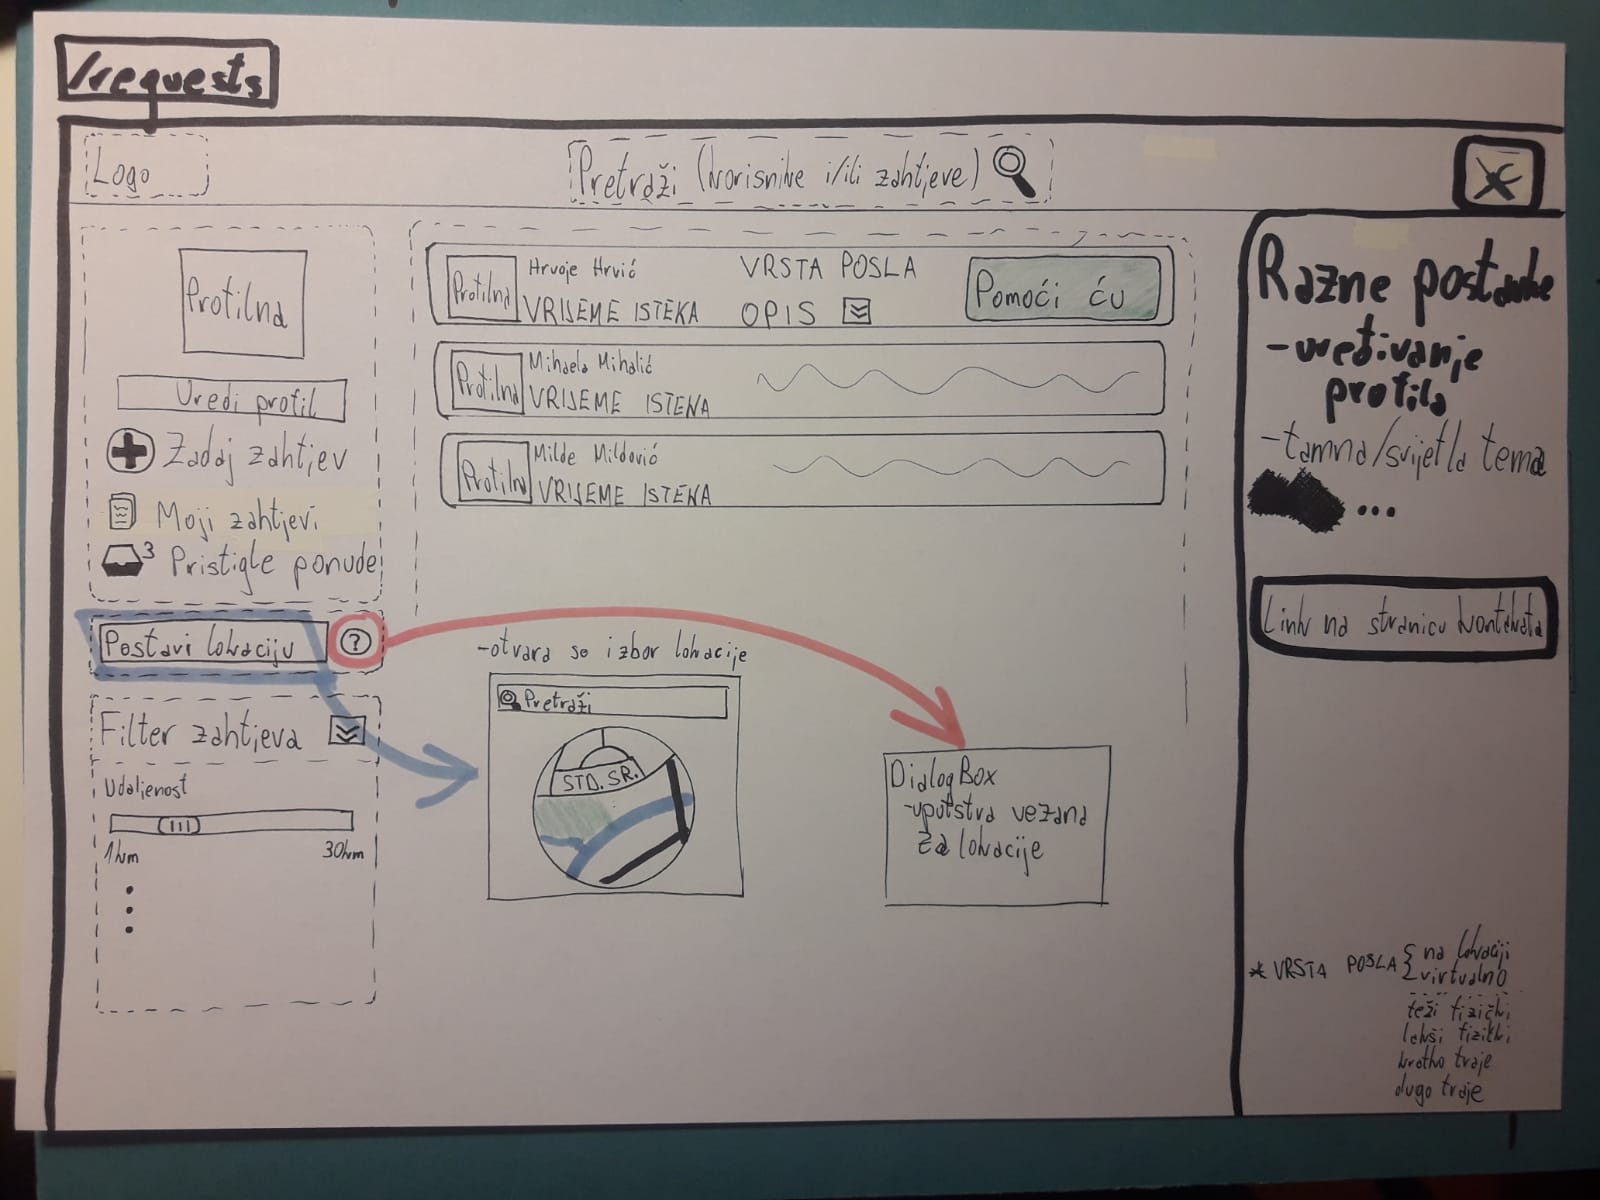 /requests
Logo
Pretraži (korisnike i/ili zahtjeve)
Profilna
Uredi profil
Zadaj zahtjev
Moji zahtjevi
3 Pristigle ponude
Postavi lokaciju ?
Filter zahtjeva
Udaljenost
1km 30km
Profilna
Hrvoje Hrvić
VRIJEME ISTEKA
VRSTA POSLA
OPIS
Pomoći ću
Profilna
Mihaela Mihalić
VRIJEME ISTEKA
Profilna
Milde Mildović
VRIJEME ISTEKA
-otvara se izbor lokacije
Pretraži
STD. SR.
DialogBox
-uputstva vezana
za lokacije
X
Razne postavke
-uređivanje
profila
-tamna/svijetla tema
...
Link na stranicu kontakata
* VRSTA POSLA { na lokaciji
virtualno
teži fizički
lakši fizički
kratko traje
dugo traje